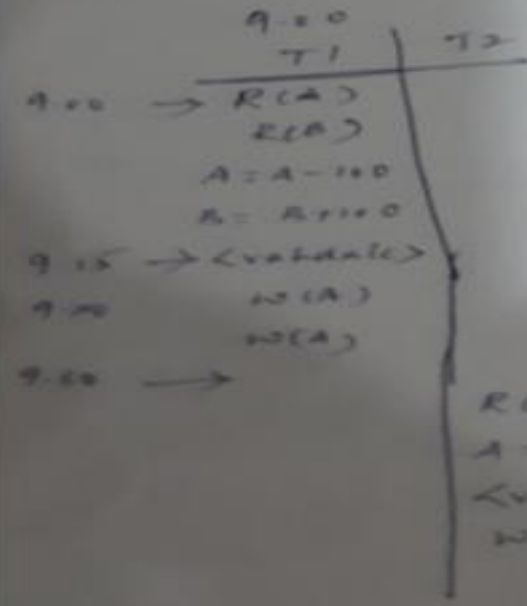 9.00
T1 T2
9.00 → R(A)
R(B)
A = A - 100
B = B + 100
9.15 → <validate>
W(A)
W(A)
→
R
A
<v